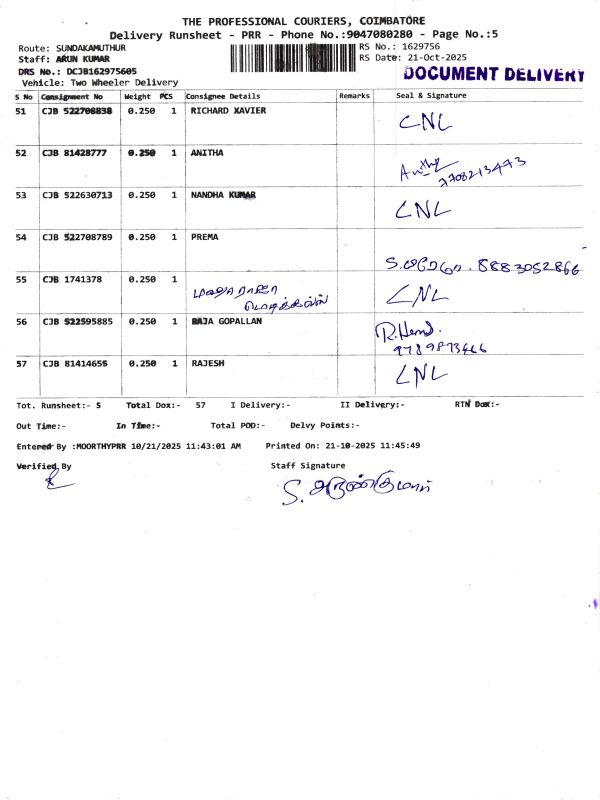 THE PROFESSIONAL COURIERS, COIMBATORE
Delivery Runsheet - PRR - Phone No.:9047080280 - Page No.:5
Route: SUNDAKAMUTHUR RS No.: 1629756
Staff: ARUN KUMAR RS Date: 21-Oct-2025
DRS No.: DCJB162975605 DOCUMENT DELIVERY
Vehicle: Two Wheeler Delivery
S No Consignment No Weight PCS Consignee Details Remarks Seal & Signature
51 CJB 522708838 0.250 1 RICHARD XAVIER CNL
52 CJB 81428777 0.250 1 ANITHA
7708213473
53 CJB 522630713 0.250 1 NANDHA KUMAR CNL
54 CJB 522708789 0.250 1 PREMA
S.பிரேமா. 8883052866
55 CJB 1741378 0.250 1 மகாராஜா CNL
மெடிக்கல்ஸ்
56 CJB 522595885 0.250 1 RAJA GOPALLAN
9789873466
57 CJB 81414655 0.250 1 RAJESH CNL
Tot. Runsheet:- 5 Total Dox:- 57 I Delivery:- II Delivery:- RTN Dox:-
Out Time:- In Time:- Total POD:- Delvy Points:-
Entered By :MOORTHYPRR 10/21/2025 11:43:01 AM Printed On: 21-10-2025 11:45:49
Verified By Staff Signature
S. அருண்குமார்